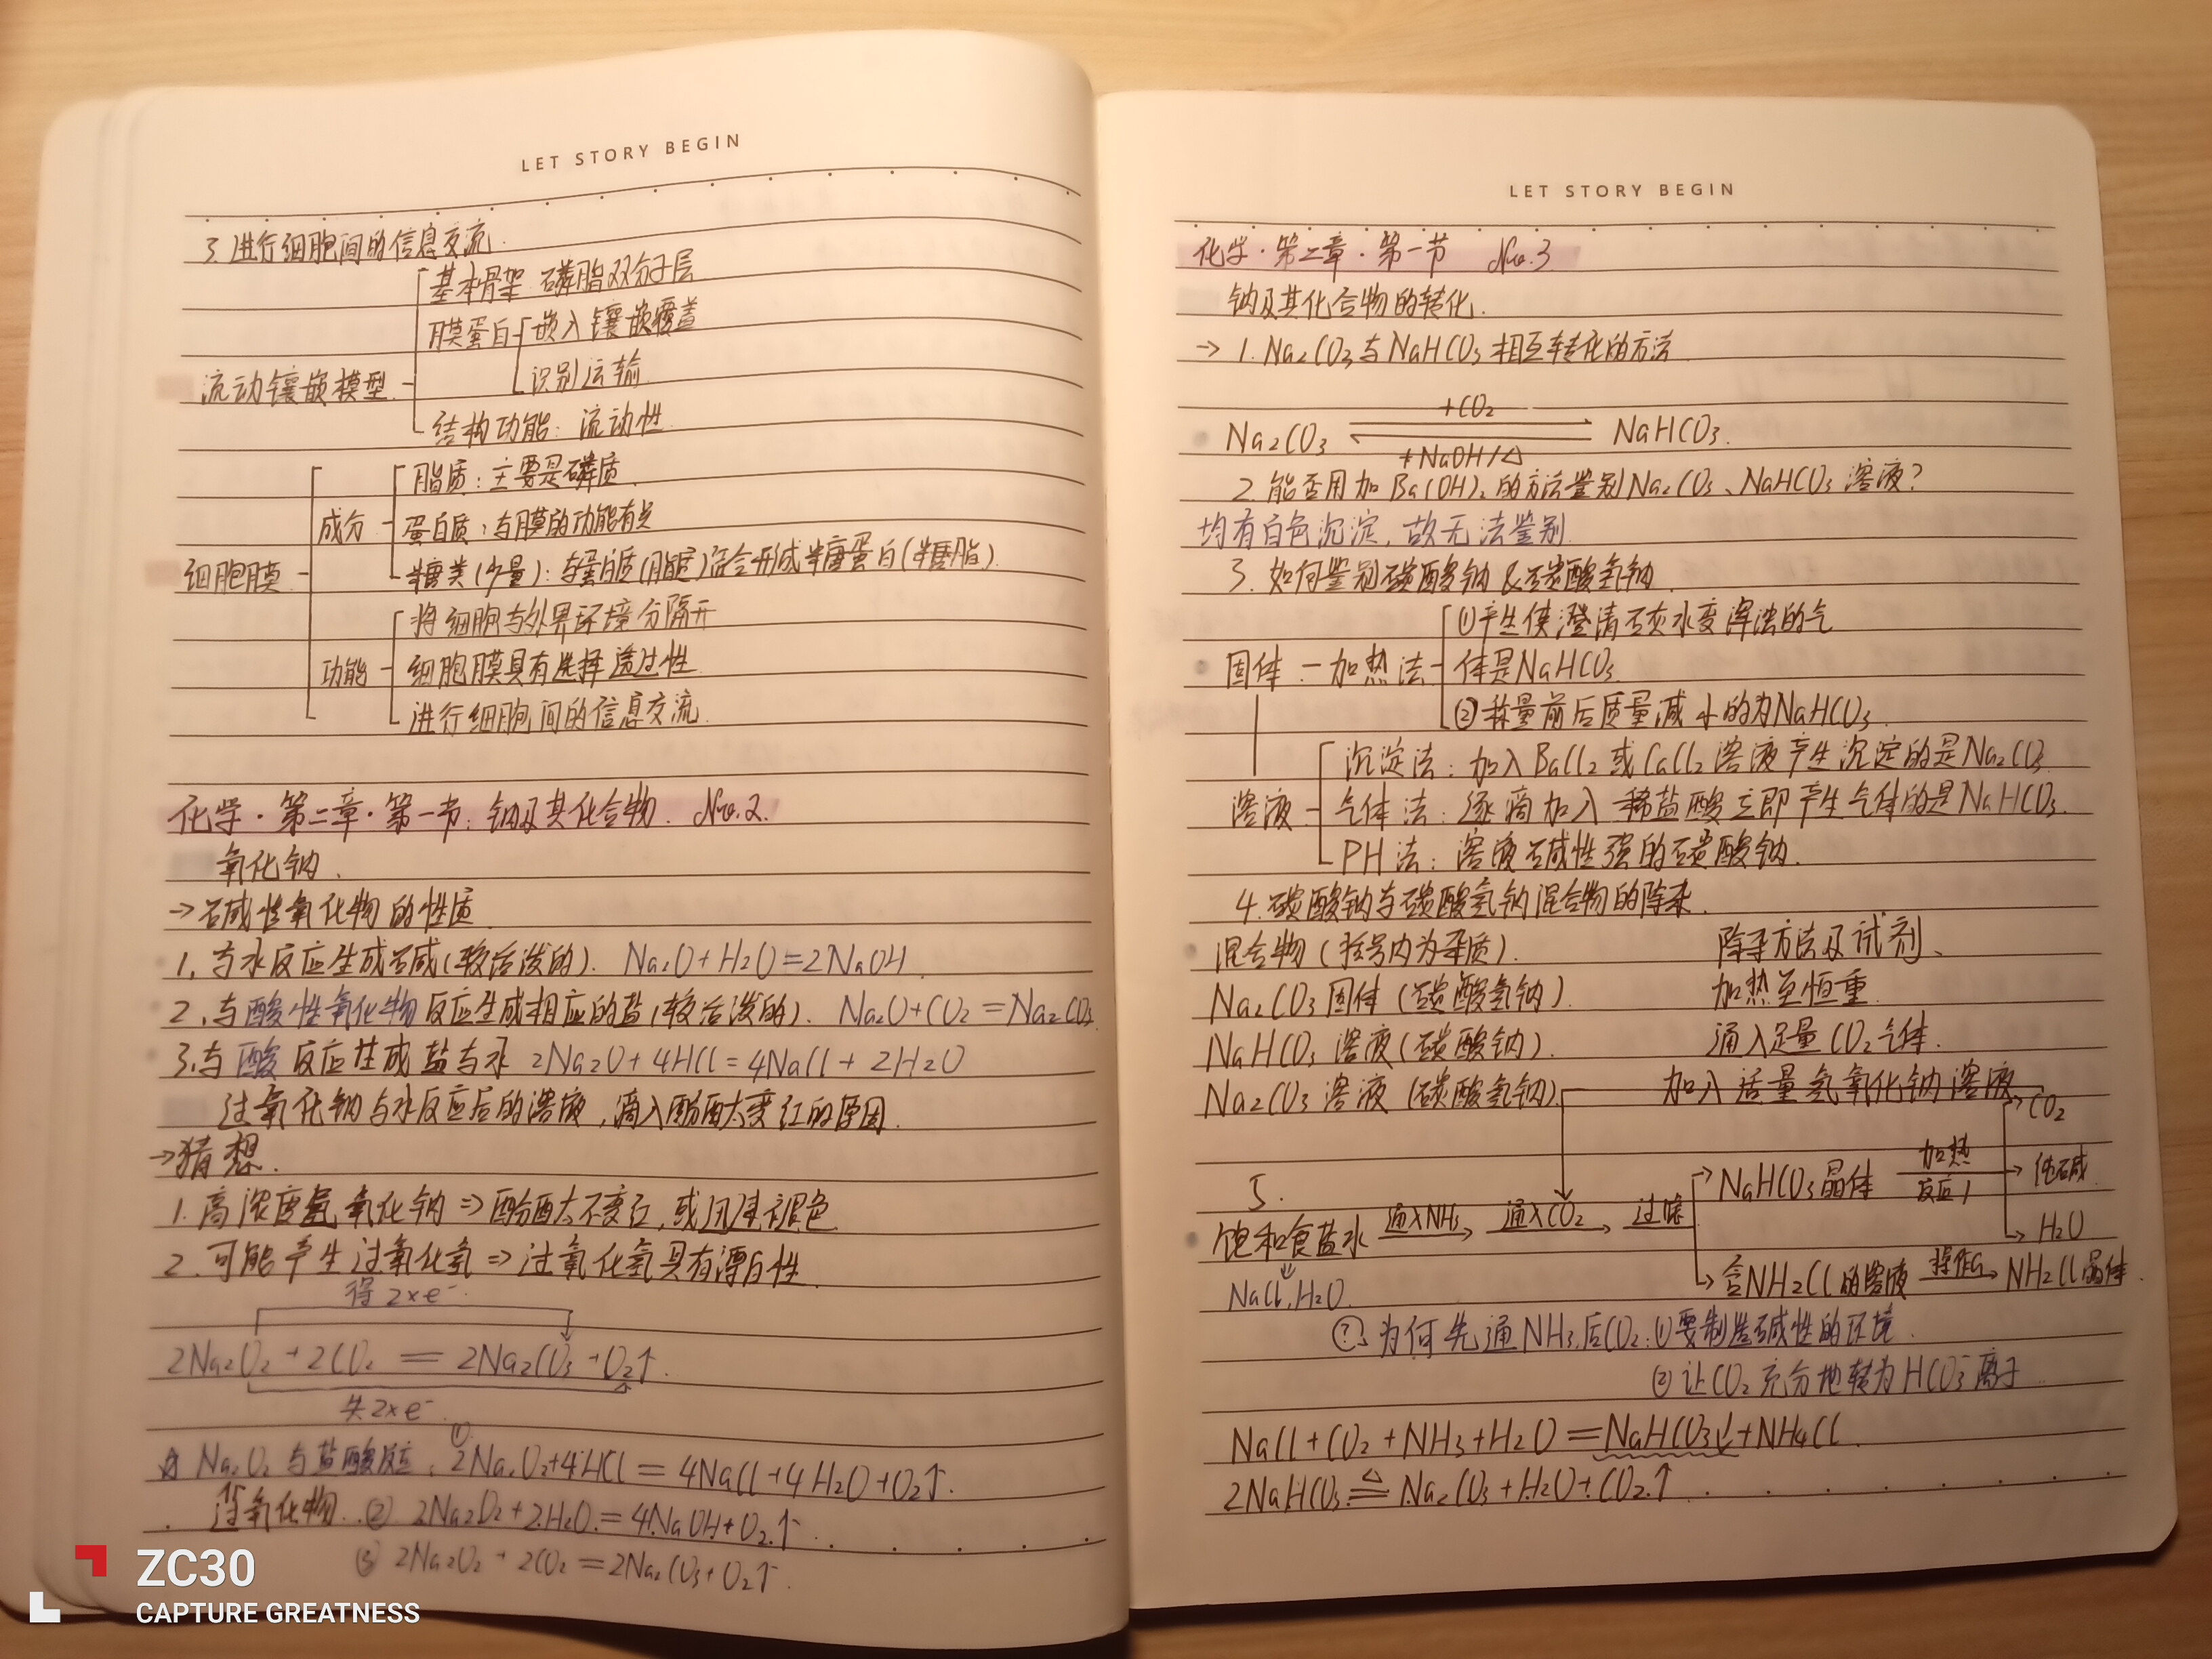 LET STORY BEGIN
3.进行细胞间的信息交流.
基本骨架 磷脂双分子层
膜蛋白 嵌入 镶嵌覆盖
识别运输
流动镶嵌模型
结构功能：流动性.
脂质：主要是磷质.
成分
蛋白质：与膜的功能有关
糖类(少量)：与蛋白质(脂质)结合形成糖蛋白(糖脂).
细胞膜
将细胞与外界环境分隔开
功能
细胞膜具有选择透过性
进行细胞间的信息交流.
化学·第二章·第一节：钠及其化合物. No.2.
氧化钠.
→碱性氧化物的性质
1.与水反应生成碱(较活泼的). Na₂O+H₂O=2NaOH.
2.与酸性氧化物反应生成相应的盐(较活泼的). Na₂O+CO₂=Na₂CO₃
3.与酸反应生成盐与水 2Na₂O+4HCl=4NaCl+2H₂O
过氧化钠与水反应后的溶液,滴入酚酞变红的原因.
→猜想.
1.高浓度氢氧化钠⇒酚酞不变红,或迅速褪色.
2.可能产生过氧化氢⇒过氧化氢具有漂白性.
得2×e⁻.
2Na₂O₂+2CO₂=2Na₂CO₃+O₂↑.
失2×e⁻.
☆Na₂O₂与盐酸反应：①2Na₂O₂+4HCl=4NaCl+4H₂O+O₂↑.
过氧化物. ②2Na₂O₂+2H₂O=4NaOH+O₂↑.
③2Na₂O₂+2CO₂=2Na₂CO₃+O₂↑.
LET STORY BEGIN
化学·第二章·第一节 No.3
钠及其化合物的转化.
→1.Na₂CO₃与NaHCO₃相互转化的方法
+CO₂
Na₂CO₃ ⇌ NaHCO₃.
+NaOH/△
2.能否用加Ba(OH)₂的方法鉴别Na₂CO₃、NaHCO₃溶液?
均有白色沉淀,故无法鉴别.
3.如何鉴别碳酸钠&碳酸氢钠.
①产生使澄清石灰水变浑浊的气
固体－加热法 体是NaHCO₃
②称量前后质量减小的为NaHCO₃.
沉淀法：加入BaCl₂或CaCl₂溶液产生沉淀的是Na₂CO₃
溶液 气体法：逐滴加入稀盐酸立即产生气体的是NaHCO₃.
PH法：溶液碱性强的碳酸钠.
4.碳酸钠与碳酸氢钠混合物的除杂.
混合物(括号内为杂质). 除杂方法及试剂、
Na₂CO₃固体(碳酸氢钠). 加热至恒重.
NaHCO₃溶液(碳酸钠). 通入足量CO₂气体.
Na₂CO₃溶液(碳酸氢钠). 加入适量氢氧化钠溶液
CO₂
5.
NaHCO₃晶体 加热 反应1 纯碱
饱和食盐水 通入NH₃ 通入CO₂ 过滤
H₂O
含NH₂Cl的溶液 操作a NH₂Cl晶体.
NaCl,H₂O.
?.为何先通NH₃,后CO₂：①要制造碱性的环境.
②让CO₂充分地转为HCO₃⁻离子
NaCl+CO₂+NH₃+H₂O=NaHCO₃↓+NH₄Cl.
2NaHCO₃ △= Na₂CO₃+H₂O+CO₂↑
ZC30
CAPTURE GREATNESS